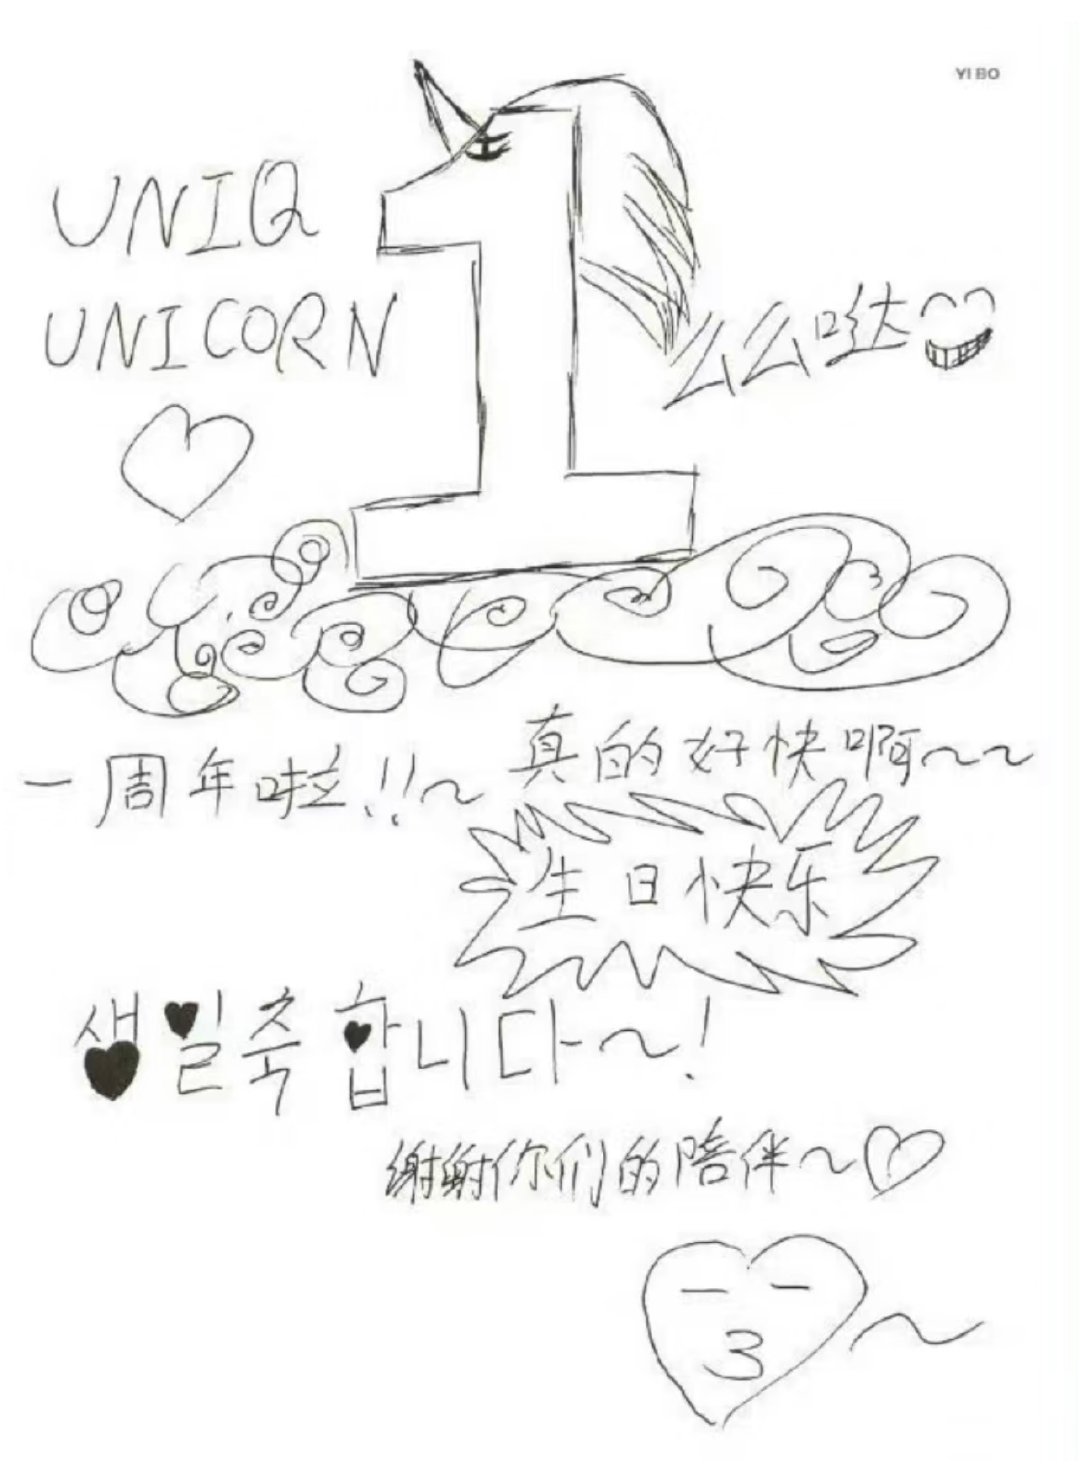 YI BO
UNIQ
UNICORN
么么哒
一周年啦!!~
真的好快啊~~
生日快乐
생일축합니다~!
谢谢你们的陪伴~